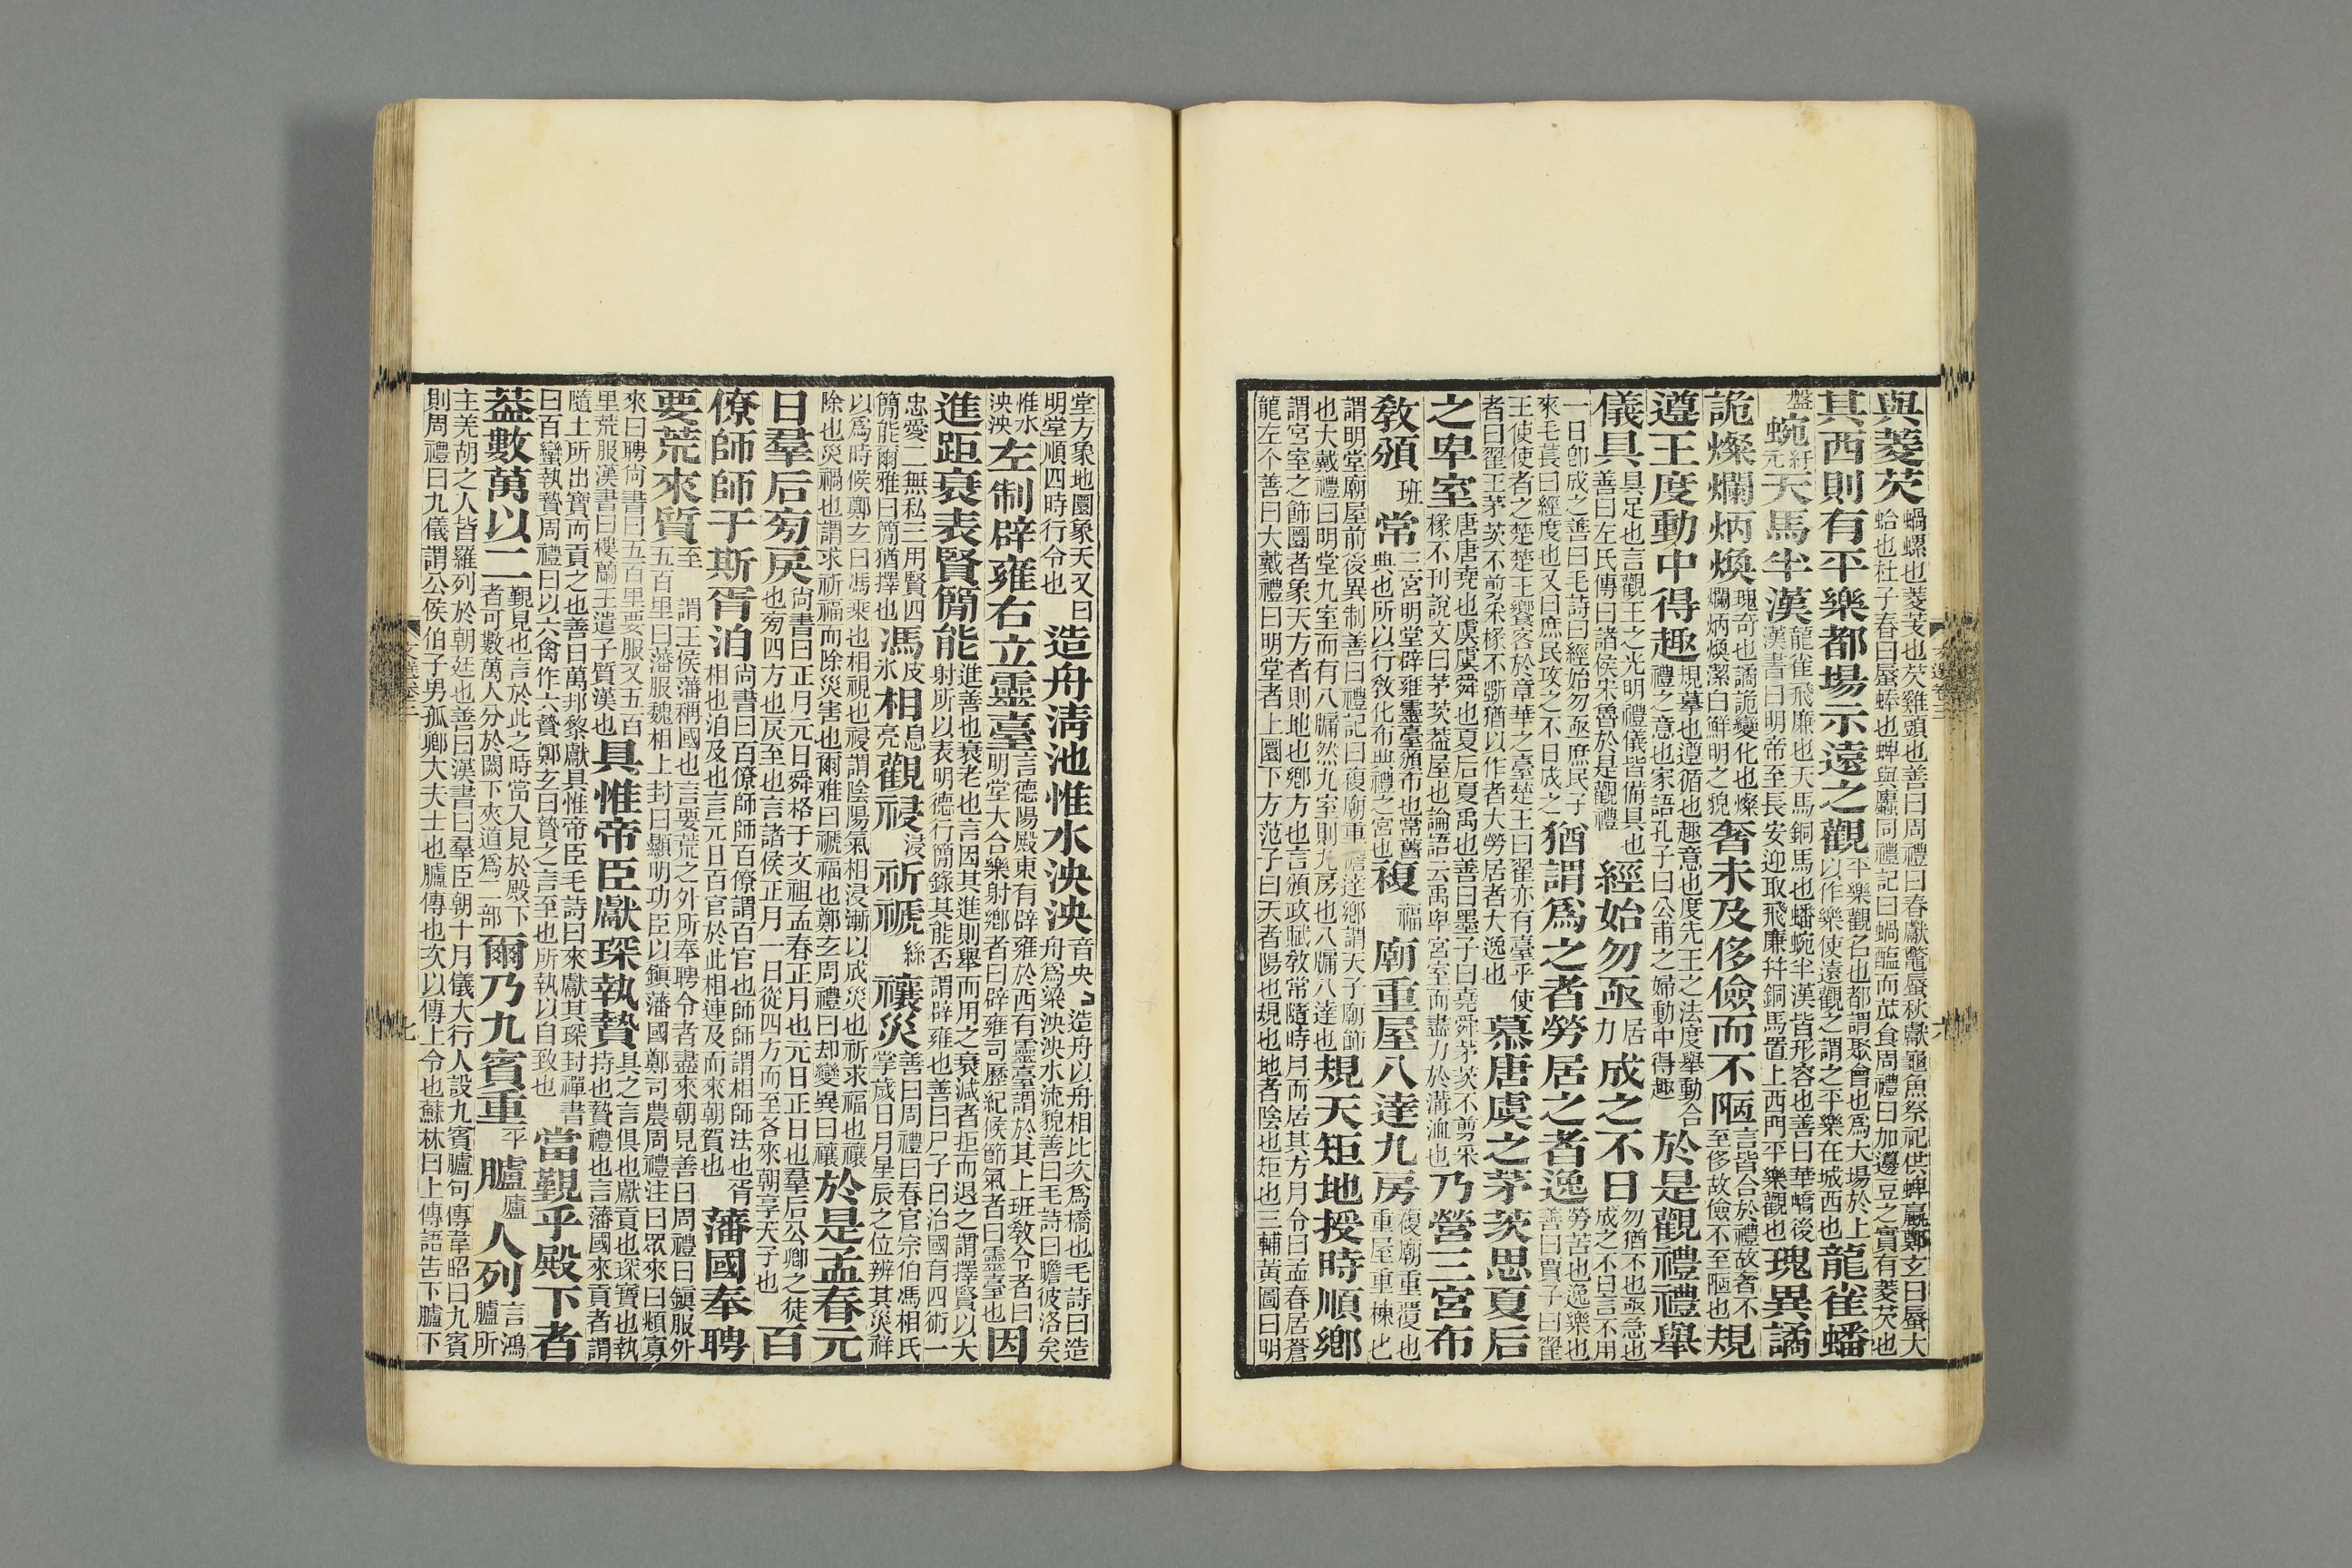 與菱芡蝸螺也菱芰也芡雞頭也善曰周禮曰春獻鼈蜃秋獻龜魚祭祀供蜱蠃鄭玄曰蜃大蛤也杜子春曰蜃蜯也蜱與蠯同禮記曰蝸醢而苽食周禮曰加籩豆之實有菱芡也
其西則有平樂都場示遠之觀平樂觀名也都謂聚會也爲大場於上以作樂使遠觀之謂之平樂在城西也龍雀蟠
盤蜿紆元天馬半漢龍雀飛廉也天馬銅馬也蟠蜿半漢皆形容也善曰華嶠後漢書曰明帝至長安迎取飛廉幷銅馬置上西門平樂觀也瑰異譎
詭燦爛炳煥瑰奇也譎詭變化也燦爛炳煥潔白鮮明之貌奢未及侈儉而不陋言皆合於禮故奢不至侈故儉不至陋也規
遵王度動中得趣規摹也遵循也趣意也度先王之法度舉動合禮之意也家語孔子曰公甫之婦動中得趣於是觀禮禮舉
儀具具足也言觀王之光明禮儀皆備具也善曰左氏傳曰諸侯宋魯於是觀禮經始勿亟居力成之不日勿猶不也亟急也成之不日言不用
一日卽成之善曰毛詩曰經始勿亟庶民子來毛萇曰經度也又曰庶民攻之不日成之猶謂爲之者勞居之者逸勞苦也逸樂也善曰賈子曰翟
王使使者之楚楚王饗客於章華之臺楚王曰翟亦有臺乎使者曰翟王茅茨不剪采椽不斲猶以作者大勞居者大逸也慕唐虞之茅茨思夏后
之卑室唐唐堯也虞虞舜也夏后夏禹也善曰墨子曰堯舜茅茨不剪采椽不刊說文曰茅茨葢屋也論語云禹卑宮室而盡力於溝洫也乃營三宮布
敎頒班常三宮明堂辟雍靈臺頒布也常舊典也所以行敎化布典禮之宮也複福廟重屋八達九房複廟重覆也重屋重棟也
謂明堂廟屋前後異制善曰禮記曰複廟重檐達鄉謂天子廟飾也大戴禮曰明堂九室而有八牖然九室則九房也八牖八達也規天矩地授時順鄉
謂宮室之飾圜者象天方者則地也鄉方也言頒政賦敎常隨時月而居其方月令曰孟春居蒼龍左个善曰大戴禮曰明堂者上圜下方范子曰天者陽也規也地者陰也矩也三輔黃圖曰明
堂方象地圜象天又曰明堂順四時行令也造舟淸池惟水泱泱音央造舟以舟相比次爲橋也毛詩曰造舟爲梁泱泱水流貌善曰毛詩曰瞻彼洛矣
惟水泱泱左制辟雍右立靈臺言德陽殿東有辟雍於西有靈臺謂於其上班敎令者曰明堂大合樂射鄉者曰辟雍司歷紀候節氣者曰靈臺也因
進距衰表賢簡能進善也衰老也言因其進則舉而用之衰減者拒而退之謂擇賢以大射所以表明德行簡錄其能否謂辟雍也善曰尸子曰治國有四術一
忠愛二無私三用賢四簡能爾雅曰簡猶擇也馮皮氷相息亮觀祲浸祈禠絲禳災善曰周禮曰春官宗伯馮相氏掌歲日月星辰之位辨其災祥
以爲時候鄭玄曰馮乘也相視也祲謂陰陽氣相浸漸以成災也祈求福也禳除也災禍也謂求祈福而除災害也爾雅曰禠福也鄭玄周禮曰却變異曰禳於是孟春元
日羣后旁戾尙書曰正月元日舜格于文祖孟春正月也元日正日也羣后公卿之徒也旁四方也戾至也言諸侯正月一日從四方而至各來朝享天子也百
僚師師于斯胥洎尙書曰百僚師師百僚謂百官也師師謂相師法也胥相也洎及也言元日百官於此相連及而來朝賀也藩國奉聘
要荒來質至謂王侯藩稱國也言要荒之外所奉聘令者盡來朝見善曰周禮曰鎭服外五百里曰藩服魏相上封曰顯明功臣以鎭藩國鄭司農周禮注曰眾來曰頫寡
來曰聘尙書曰五百里要服又五百里荒服漢書曰樓蘭王遣子質漢也具惟帝臣獻琛執贄具之言俱也獻貢也琛寶也執持也贄禮也言藩國來貢者謂
隨土所出寶而貢之也善曰萬邦黎獻具惟帝臣毛詩曰來獻其琛封禪書曰百蠻執贄周禮曰以六禽作六贄鄭玄曰贄之言至也所執以自致也當覲乎殿下者
葢數萬以二覲見也言於此之時當入見於殿下者可數萬人分於闕下夾道爲二部爾乃九賓重平臚廬人列言鴻臚所
主羌胡之人皆羅列於朝廷也善曰漢書曰羣臣朝十月儀大行人設九賓臚句傳韋昭曰九賓則周禮曰九儀謂公侯伯子男孤卿大夫士也臚傳也次以傳上令也蘇林曰上傳語告下臚下